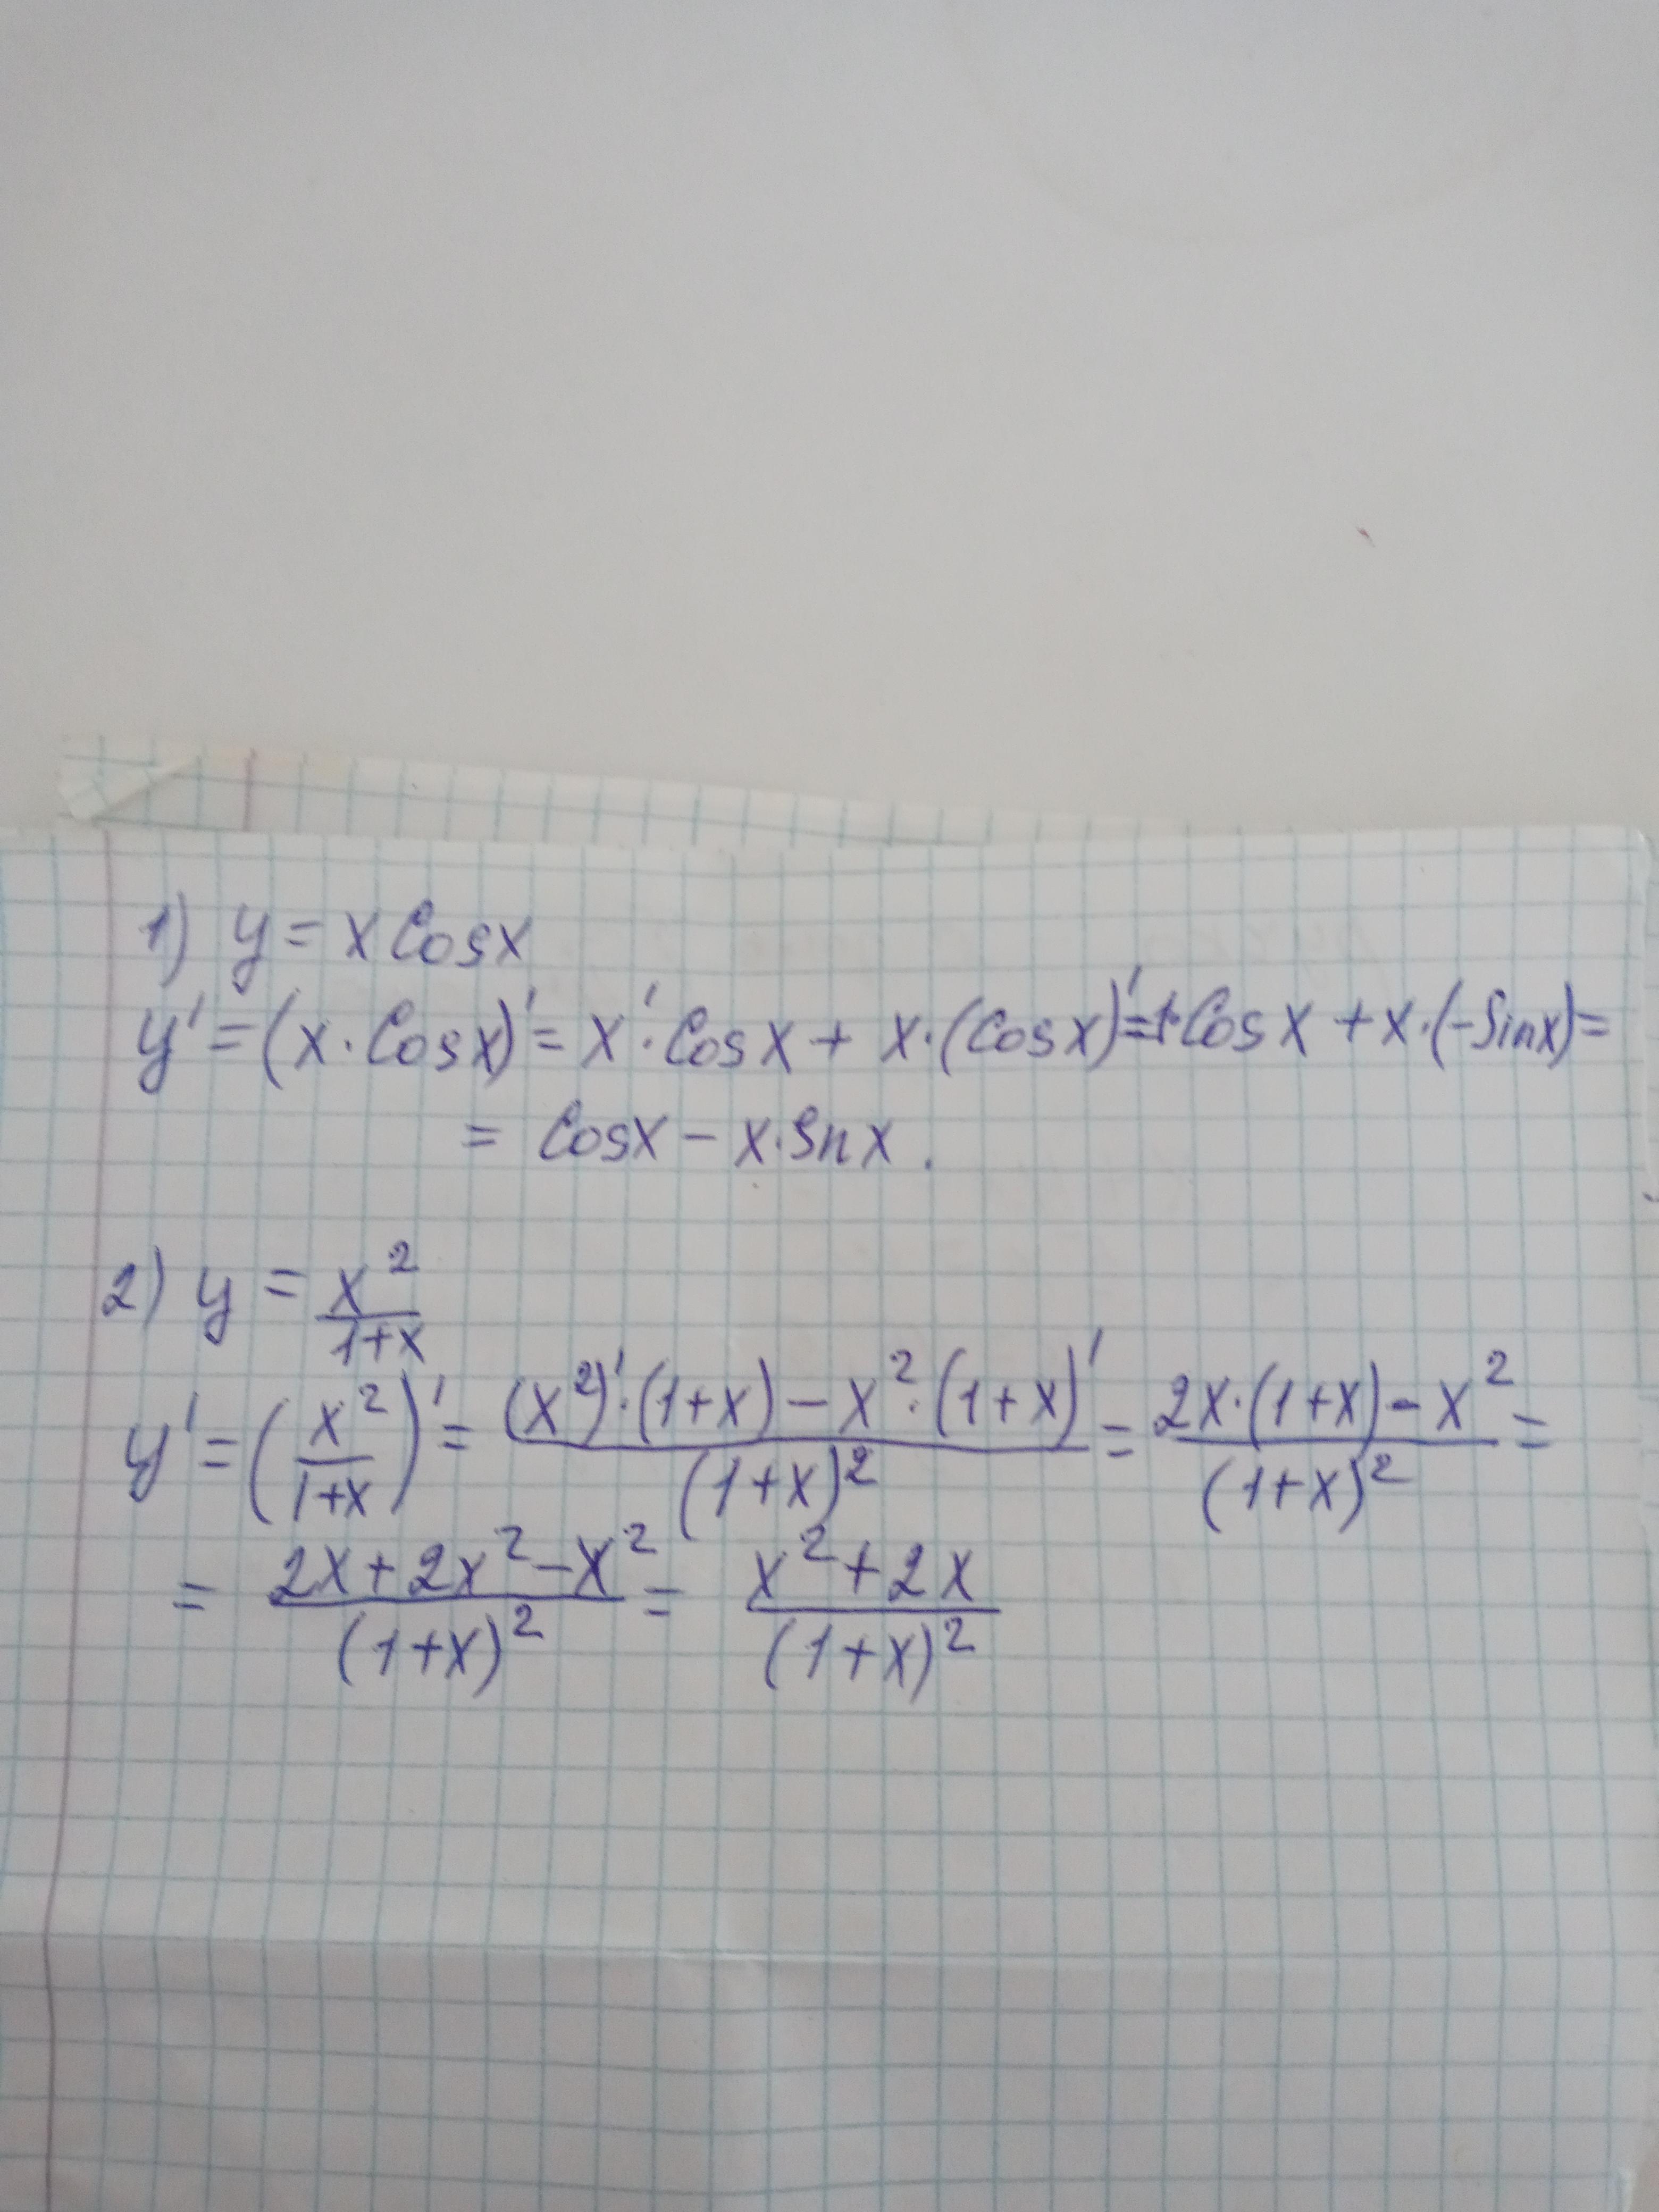 1) y = x Cosx
y' = (x · Cosx)' = x' · Cosx + x · (Cosx)' = 1·Cosx + x · (-Sinx) =
= Cosx - x · Snx.
2) y = x²/(1+x)
y' = (x²/(1+x))' = ((x²)' · (1+x) - x² · (1+x)')/(1+x)² = (2x · (1+x) - x²)/(1+x)² =
= (2x + 2x² - x²)/(1+x)² = (x² + 2x)/(1+x)²